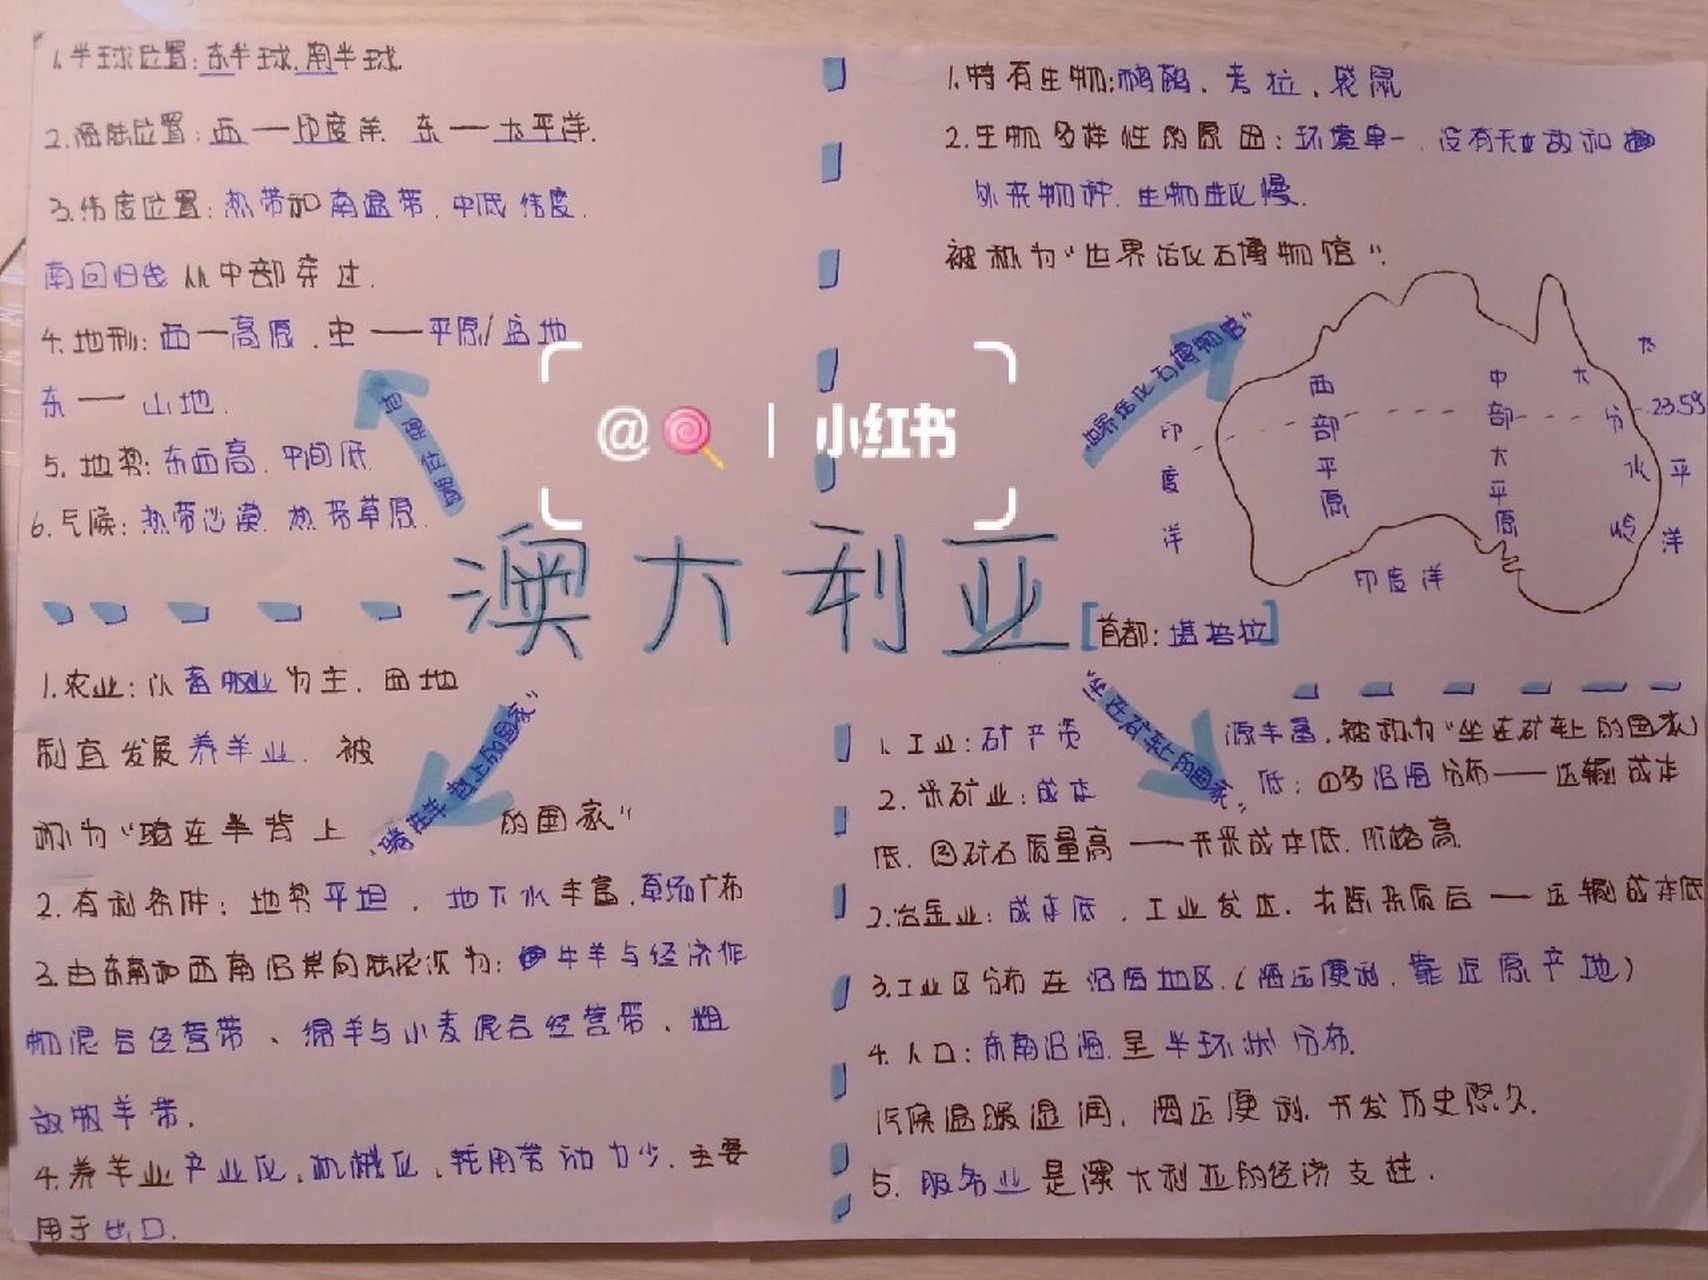 1.半球位置:东半球.南半球.
2.海陆位置:西—印度洋 东—太平洋.
3.纬度位置:热带和南温带.中低纬度.
南回归线从中部穿过.
4.地形:西—高原.中—平原/盆地
东—山地.
5.地势:东西高.中间低
6.气候:热带沙漠.热带草原.
地理位置
1.特有生物:鸸鹋、考拉、袋鼠
2.生物多样性的原因:环境单一.没有天敌和
外来物种.生物进化慢.
被称为"世界活化石博物馆".
世界活化石博物馆"
西部平原
中部大平原
大分水岭
23.5°S
印度洋
太平洋
印度洋
@ | 小红书
澳大利亚
[首都:堪培拉]
1.农业:以畜牧业为主.因地
制宜发展养羊业.被
称为"骑在羊背上的国家"
"骑在羊背上的国家"
2.有利条件:地势平坦,地下水丰富.草场广布
3.由东南和西南沿岸向陆依次为:牛羊与经济作
物混合经营带、绵羊与小麦混合经营带、粗
放牧羊带.
4.养羊业产业化.机械化.耗用劳动力少.主要
用于出口.
"坐在矿车上的国家"
1.工业:矿产资源丰富.被称为"坐在矿车上的国家"
2.采矿业:成本低:①多沿海分布——运输成本
低.②矿石质量高——开采成本低.价格高.
2.冶金业:成本低,工业发达.去除杂质后——运输成本低
3.工业区分布在沿海地区.(海运便利.靠近原产地)
4.人口:东南沿海.呈半环状分布.
气候温暖湿润.海运便利.开发历史悠久.
5.服务业是澳大利亚的经济支柱.